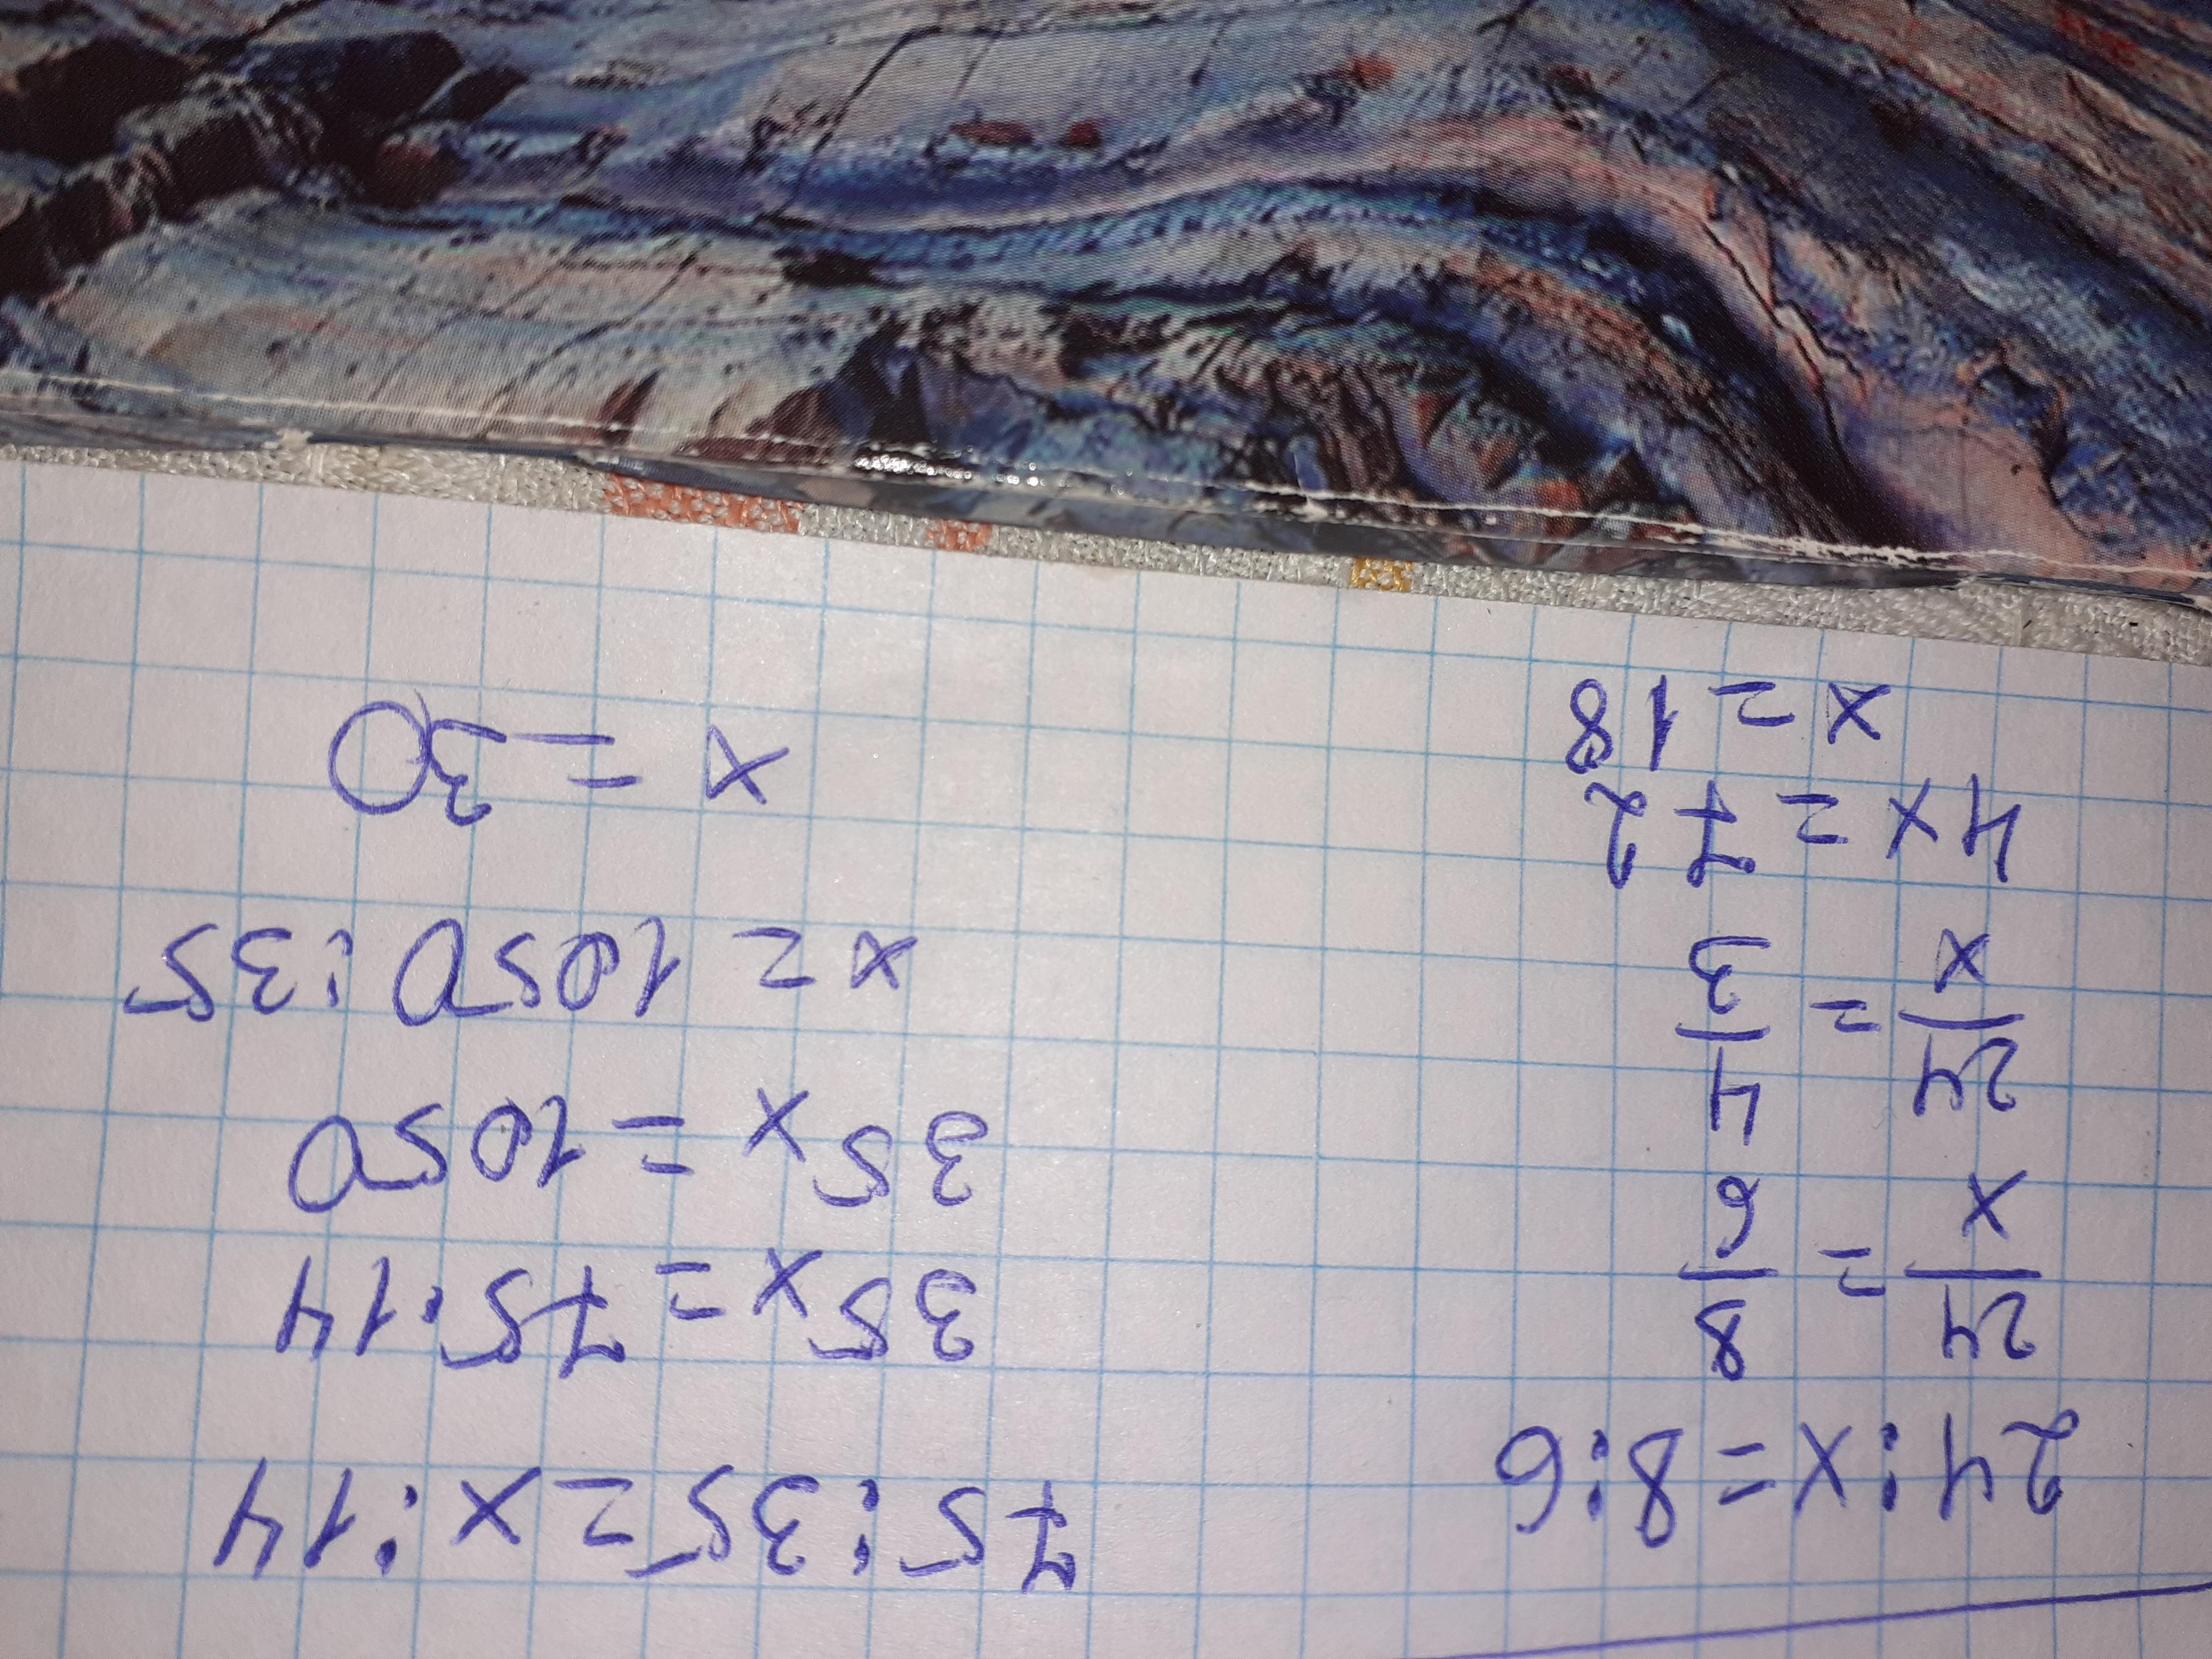 24:x=8:6
24/x = 8/6
24/x = 4/3
4x=72
x=18
75:35=x:14
35x=75·14
35x=1050
x=1050:35
x=30